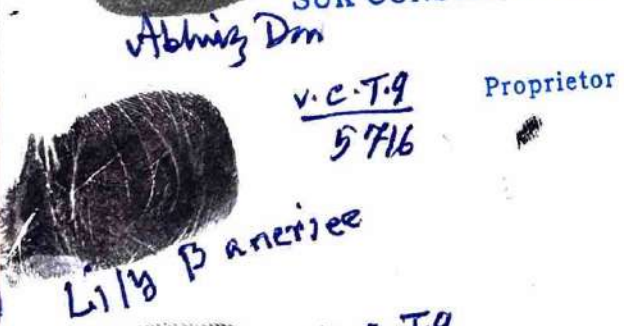 Abhiz Dan
v.c.T.9
5716
Proprietor
Lily Banerjee
T.9